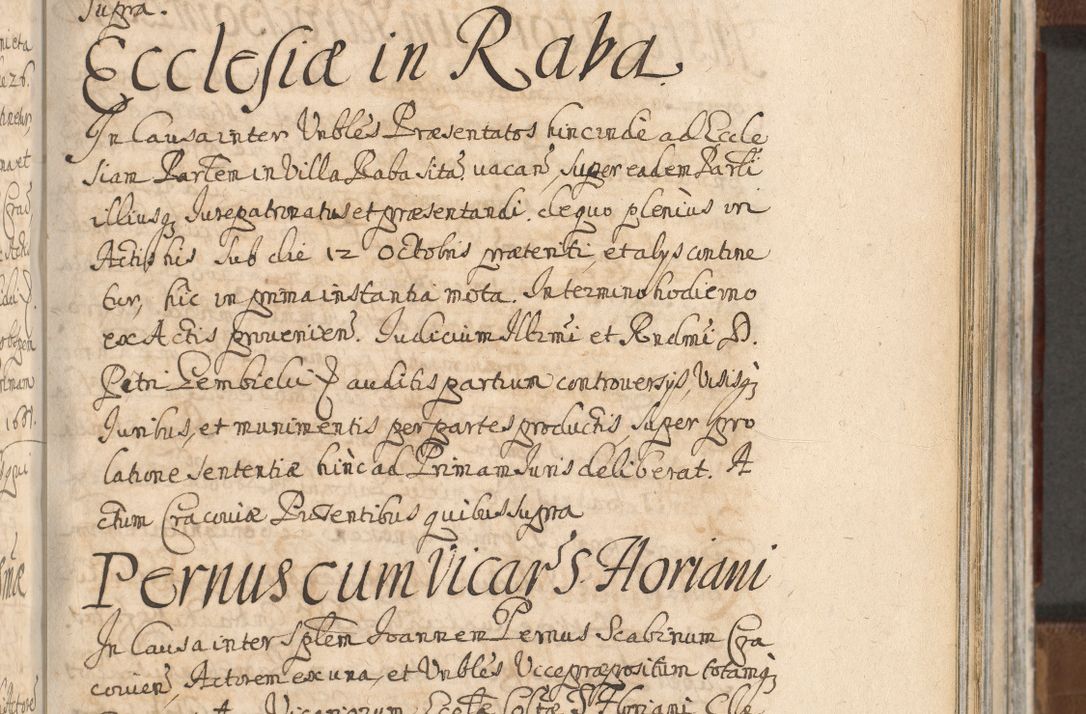 Supra.
Ecclesiæ in Raba
In Causa inter Vnbles Præsentatos hincinde ad Eccle
siam Partem in Villa Raba sita vacan, super eadem Parti
illiusq Iurepatronatus et præsentandi, de quo plenius in
Actis his sub die 12 Octobris præteriti, et alys contine
tur, hic in prima instantia mota. In termino hodierno
ex Actis provenien. Iudicium Illrmi et Rndmi D.
Petri Gembicki P auditis partium controversijs, Visisq
Iuribus, et munimentis per partes productis, super pro
latione sententiæ hinc ad Primam Iuris deliberat. A
ctum Cracoviæ Præsentibus quibus supra
Pernus cum Vicar S. Floriani
In Causa inter Splem Joannem Pernus Scabinum Cra
covien, Actorem ex una, et Vnbles Vicepræpositum totamq
Vicariorum Eccle Colltæ S. Floriani Cle